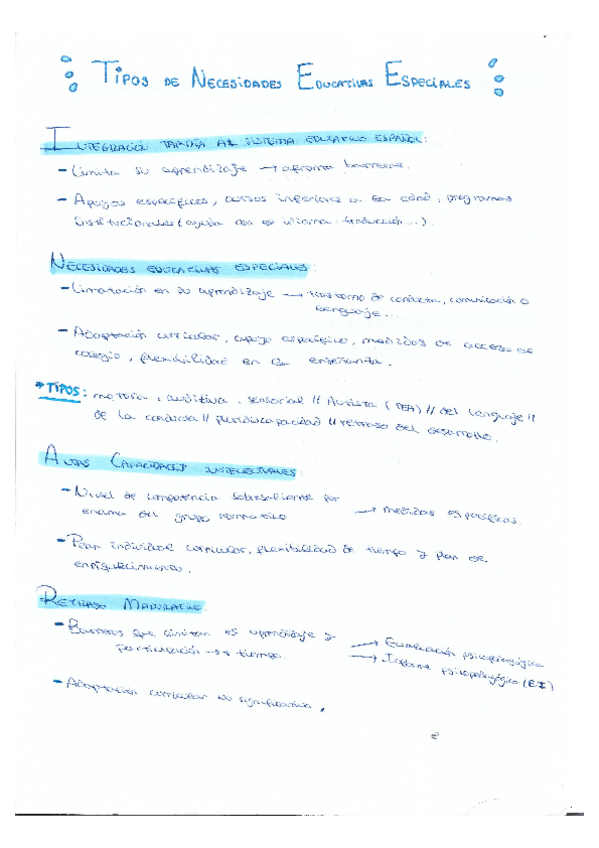 TIPOS DE NECESIDADES EDUCATIVAS ESPECIALES
INTEGRACIÓN TARDÍA AL SISTEMA EDUCATIVO ESPAÑOL:
- Limita su aprendizaje → afronta barreras.
- Apoyos específicos, cursos inferiores a su, programas
institucionales (ayuda con el idioma, traducción...).
NECESIDADES EDUCATIVAS ESPECIALES:
- Limitación en su aprendizaje → trastorno de conducta, comunicación o
lenguaje...
- Adaptación curricular, apoyo específico, medidas de acceso al
colegio, flexibilidad en la enseñanza.
* TIPOS: motora, auditiva, sensorial // Autista (TEA) // del lenguaje //
de la conducta // pluridiscapacidad // retraso del desarrollo.
ALTAS CAPACIDADES INTELECTUALES:
- Nivel de competencia sobresaliente por
encima del grupo normativo → medidas específicas.
- Plan individual curricular, flexibilidad de tiempo y plan de
enriquecimiento.
RETRASO MADURATIVO:
- Barreras que limitan el aprendizaje y → Evaluación psicopedagógica
participación → tiempo. → Informe psicopedagógico (EI)
- Adaptación curricular no significativa.